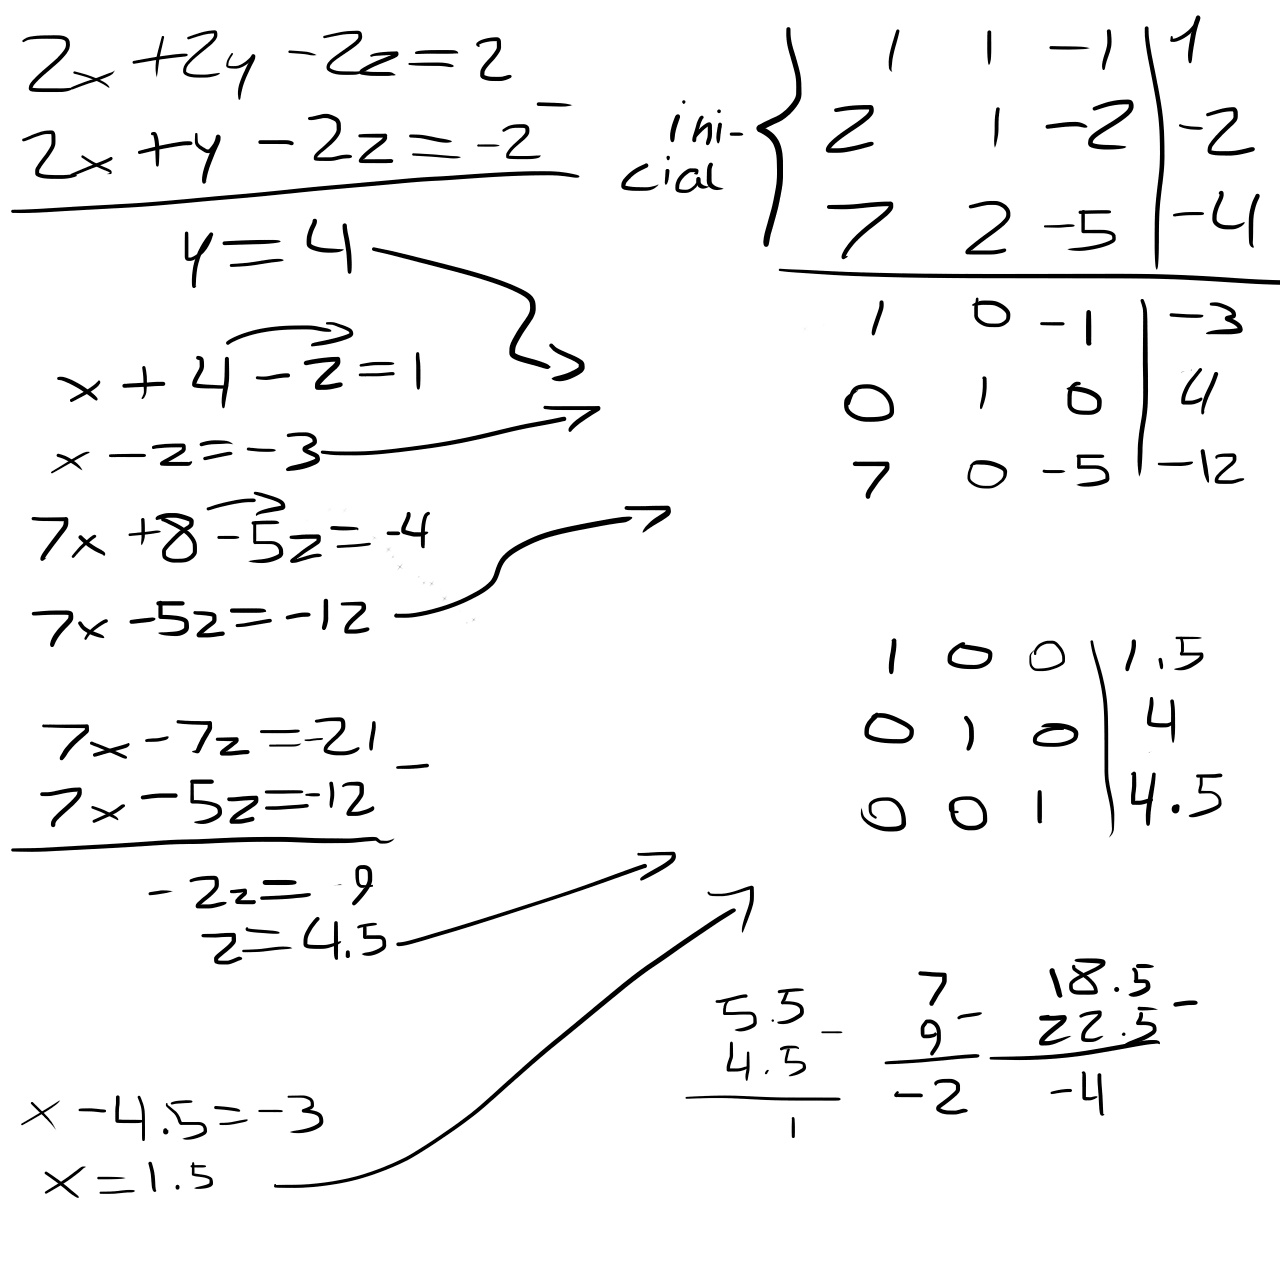 2x + 2y - 2z = 2
2x + y - 2z = -2 -
y = 4
x + 4 - z = 1
x - z = -3
7x + 8 - 5z = -4
7x - 5z = -12
7x - 7z = -21
7x - 5z = -12 -
-2z = 9
z = 4.5
x - 4.5 = -3
x = 1.5
ini-
cial
1 1 -1 | 1
2 1 -2 | -2
7 2 -5 | -4
1 0 -1 | -3
0 1 0 | 4
7 0 -5 | -12
1 0 0 | 1.5
0 1 0 | 4
0 0 1 | 4.5
5.5
4.5 -
1
7
9 -
-2
18.5
22.5 -
-4